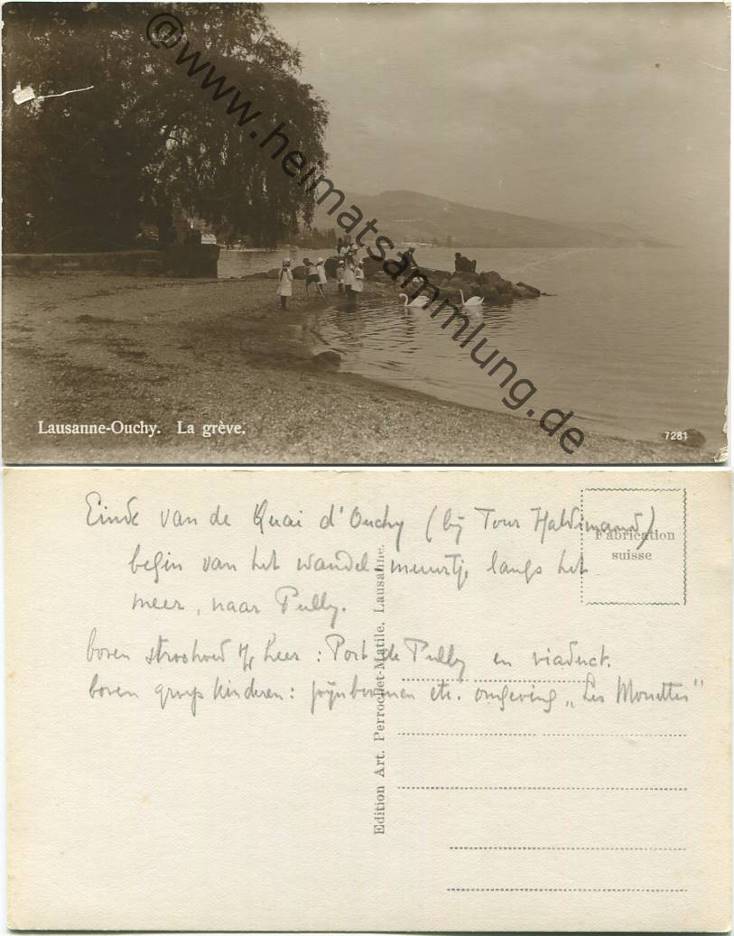 @www.heimatsammlung.de
Lausanne-Ouchy. La grève.
7281
Einde van de Quai d'Ouchy (bij Tour Haldimand)
begin van het wandel-muurtje langs het
meer, naar Pully.
boven strohoed v/e heer : Port de Pully en viaduct.
boven groep kinderen: pijnboomen etc. omgeving „Les Mouettes"
Fabrication
suisse
Edition Art. Perrochet-Matile, Lausanne.